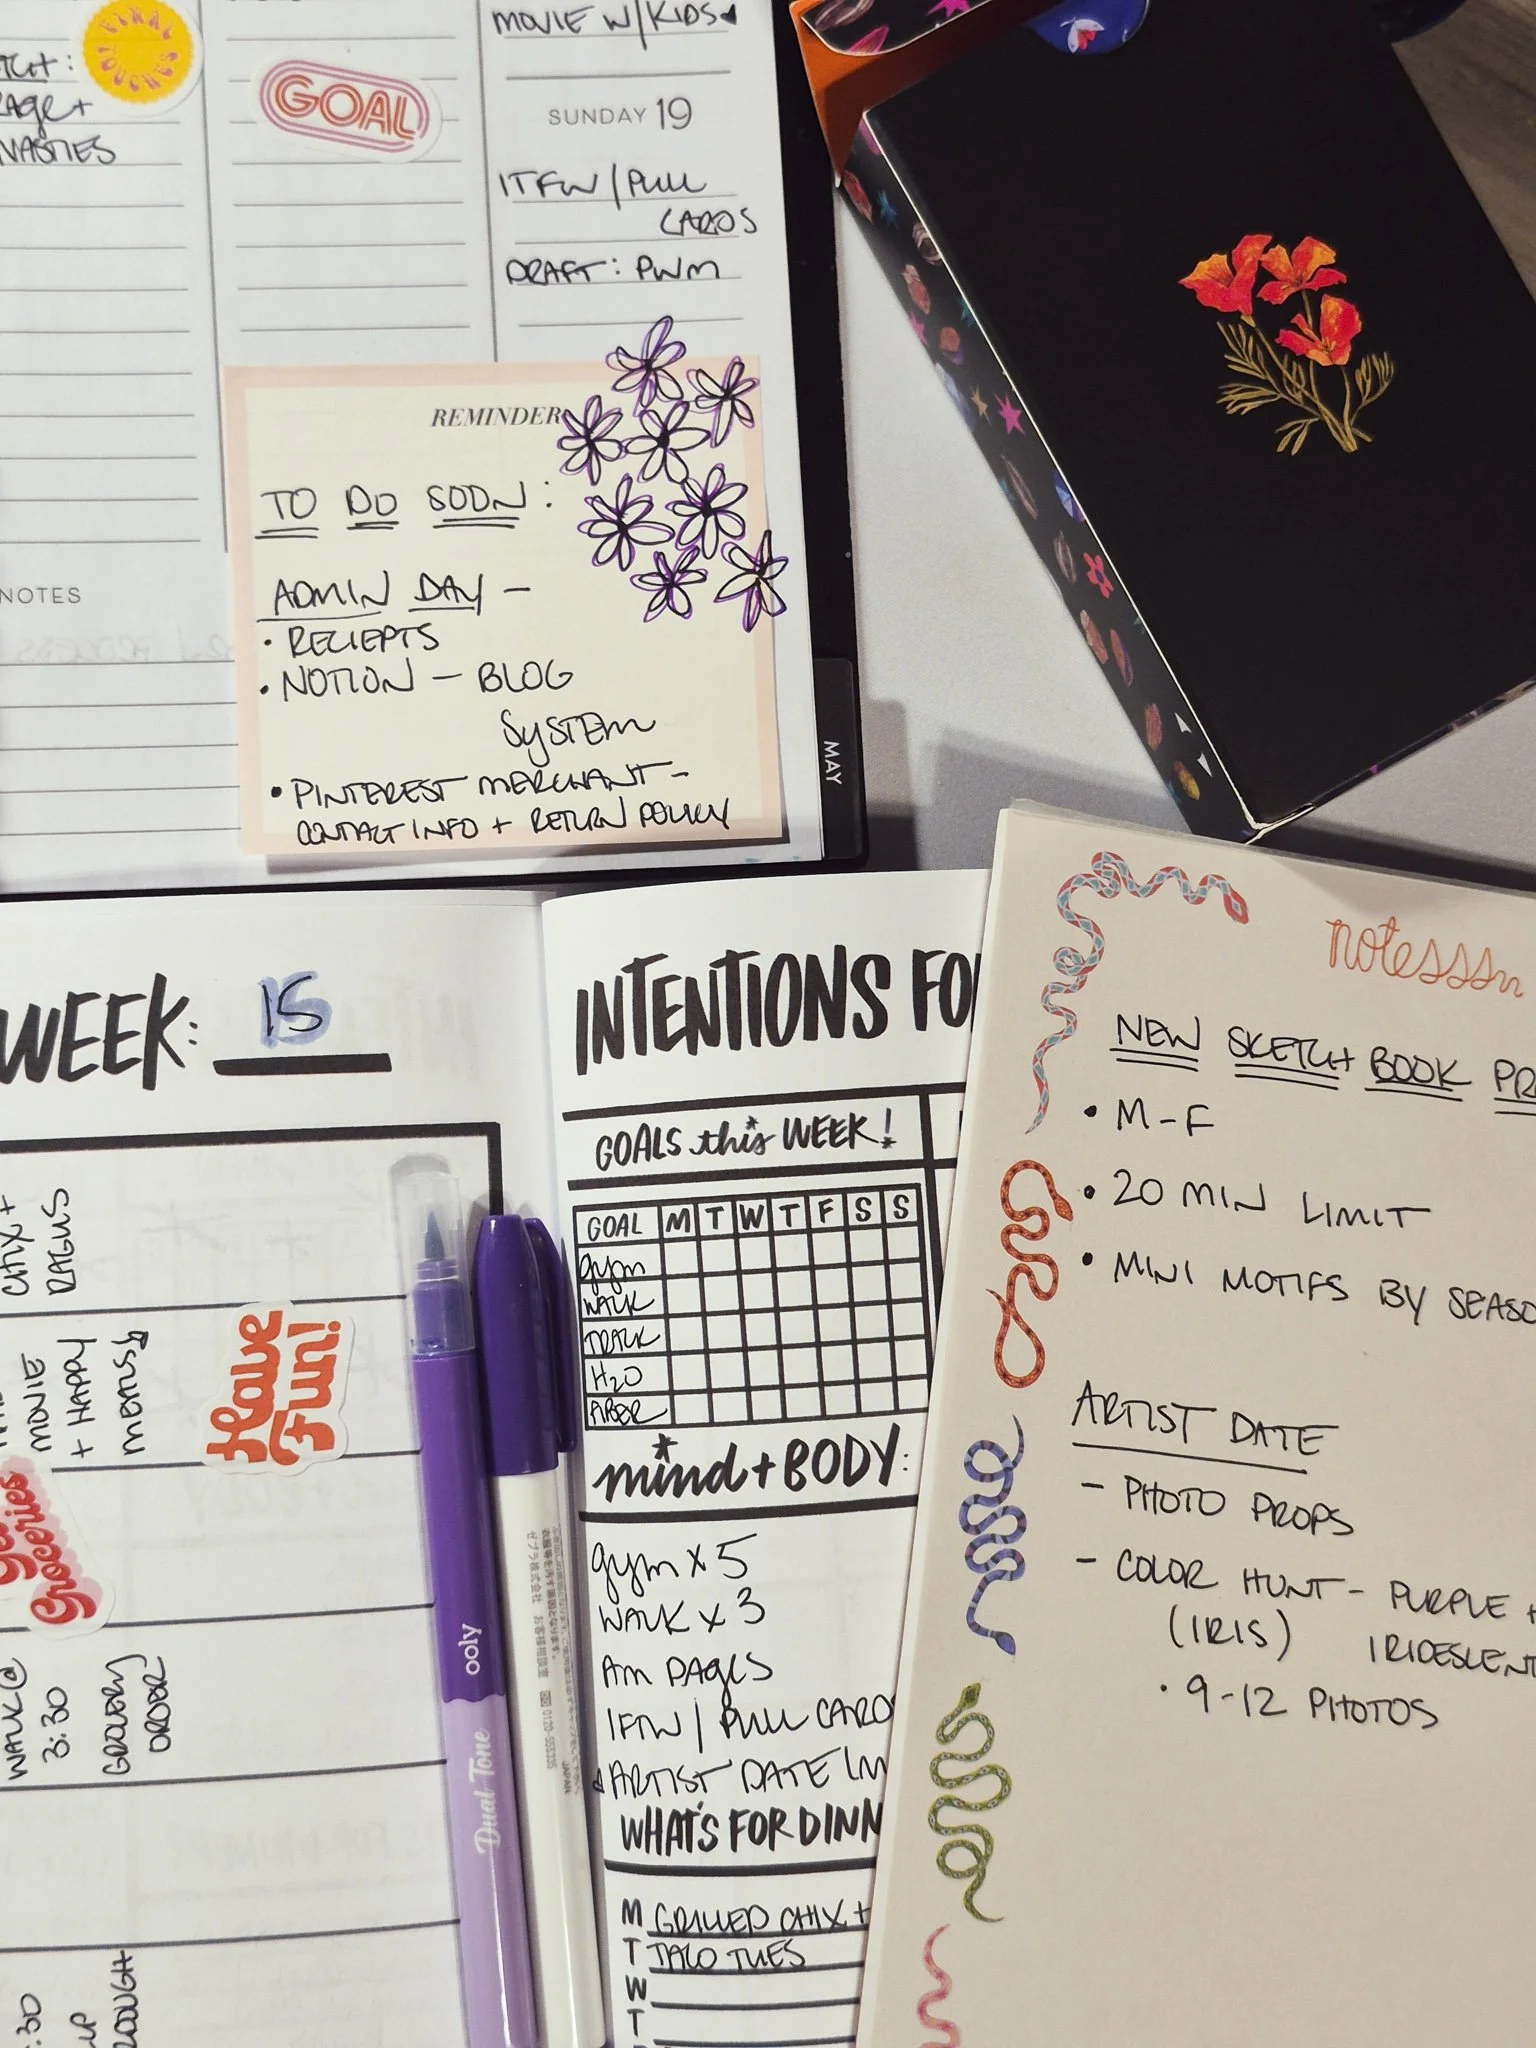 MOVIE W/KIDS
FINAL
SCHOOL
GOAL
SUNDAY 19
ITFW / PULL
CARDS
DRAFT: PWM
REMINDER
TO DO SOON:
ADMIN DAY -
• RECIEPTS
• NOTION - BLOG
SYSTEM
• PINTEREST MERCHANT -
CONTACT INFO + RETURN POLICY
NOTES
MAY
WEEK: 15
CHIX +
RAGUS
MOVIE
+ HAPPY
MEALS
Have
Fun!
Groceries
WALK @
3:30
GROCERY
ORDER
:30
DOUGH
ooly
Dual Tone
ゼブラ株式会社 お客様相談室 0120-555335
JAPAN
INTENTIONS FO
GOALS this WEEK!
GOAL M T W T F S S
gym
WALK
TRACK
H2O
mind + BODY:
gym x 5
WALK x 3
AM PAGES
IFTW / PULL CARD
ARTIST DATE
WHAT'S FOR DINN
M GRILLED CHIX +
T TACO TUES
W
T
notesssss
NEW SKETCH BOOK PR
• M-F
• 20 MIN LIMIT
• MINI MOTIFS BY SEASO
ARTIST DATE
- PHOTO PROPS
- COLOR HUNT - PURPLE +
(IRIS) IRIDESCENT
• 9-12 PHOTOS